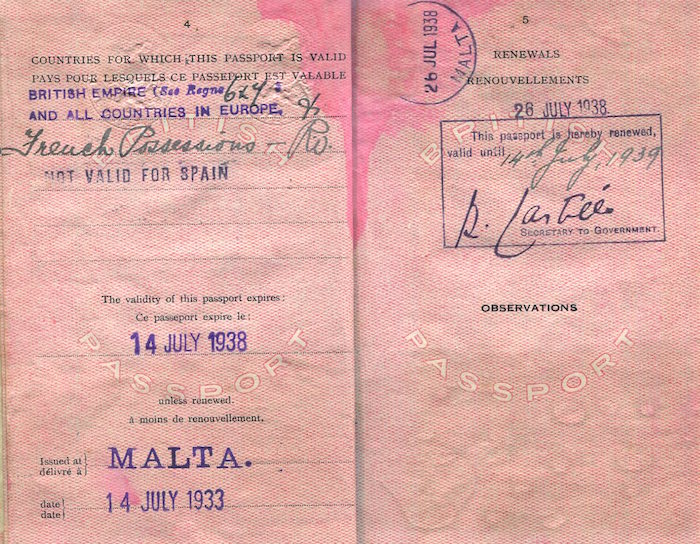 4
COUNTRIES FOR WHICH THIS PASSPORT IS VALID
PAYS POUR LESQUELS CE PASSEPORT EST VALABLE
BRITISH EMPIRE (See Regns 6 & 7
AND ALL COUNTRIES IN EUROPE, &
French Possessions
NOT VALID FOR SPAIN
BRITISH
The validity of this passport expires:
Ce passeport expire le:
14 JULY 1938
PASSPORT
unless renewed.
à moins de renouvellement.
Issued at
délivré à
MALTA.
date
date
14 JULY 1933
26 JUL 1938
MALTA
5
RENEWALS
RENOUVELLEMENTS
26 JULY 1938
BRITISH
This passport is hereby renewed,
valid until 14th July, 1939
SECRETARY TO GOVERNMENT.
OBSERVATIONS
PASSPORT